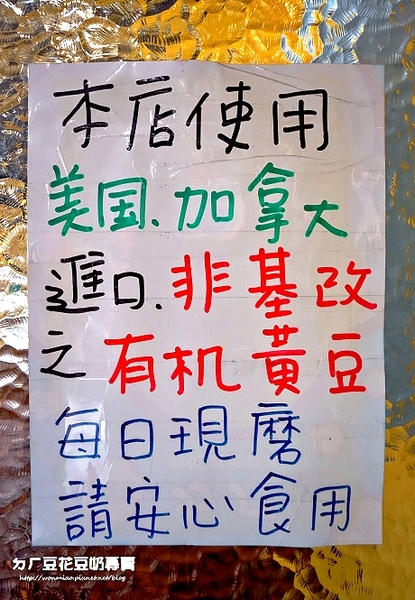 本店使用
美国、加拿大
進口、非基改
之有机黃豆
每日現磨
請安心食用
ㄉㄏ豆花豆奶專賣
http://wonmiao.pixnet.net/blog